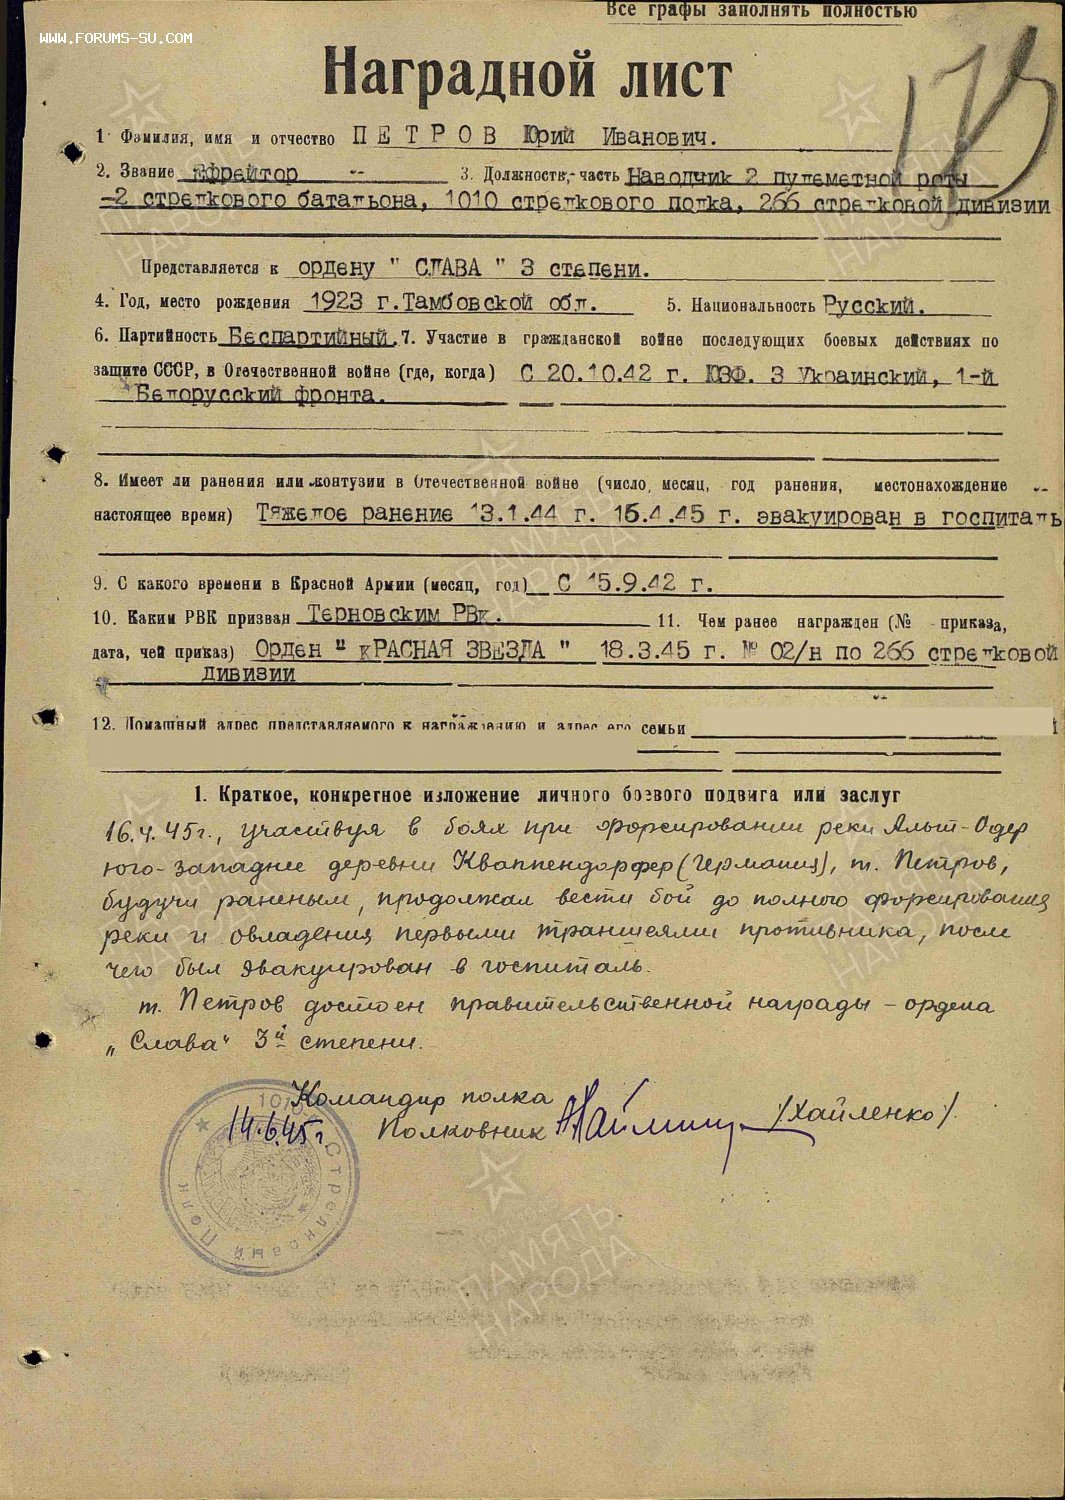 Все графы заполнять полностью
WWW.FORUMS-SU.COM
Наградной лист
1 Фамилия, имя и отчество ПЕТРОВ Юрий Иванович.
2. Звание Ефрейтор -- 3. Должность,-часть Наводчик 2 пулеметной роты
-2 стрелкового батальона, 1010 стрелкового полка, 266 стрелковой дивизии
Представляется к ордену " СЛАВА " 3 степени.
4. Год, место рождения 1923 г.Тамбовской обл. 5. Национальность Русский.
6. Партийность Беспартийный. 7. Участие в гражданской войне последующих боевых действиях по
защите СССР, в Отечественной войне (где, когда) С 20.10.42 г. ЮЗФ. 3 Украинский, 1-й
Белорусский фронта.
8. Имеет ли ранения или контузии в Отечественной войне (число, месяц, год ранения, местонахождение
настоящее время) Тяжелое ранение 13.1.44 г. 16.4.45 г. эвакуирован в госпиталь
9. С какого времени в Красной Армии (месяц, год) С 15.9.42 г.
10. Каким РВК призван Терновским РВк. 11. Чем ранее награжден (№ приказа,
дата, чей приказ) Орден " кРАСНАЯ ЗВЕЗДА " 18.3.45 г. № 02/н по 266 стрелковой
дивизии
12. Домашный адрес представляемого к награждению и адрес его семьи
1. Краткое, конкретное изложение личного боевого подвига или заслуг
16.4.45г., участвуя в боях при форсировании реки Альт-Одер
юго-западнее деревни Кваппендорфер (Германия), т. Петров,
будучи раненым, продолжал вести бой до полного форсирования
реки и овладения первыми траншеями противника, после
чего был эвакуирован в госпиталь.
т. Петров достоен правительственной награды - ордена
„Слава" 3й степени.
Командир полка
14.6.45г Полковник /Хайленко/.
1010 Стрелковый Полк
ПАМЯТЬ НАРОДА